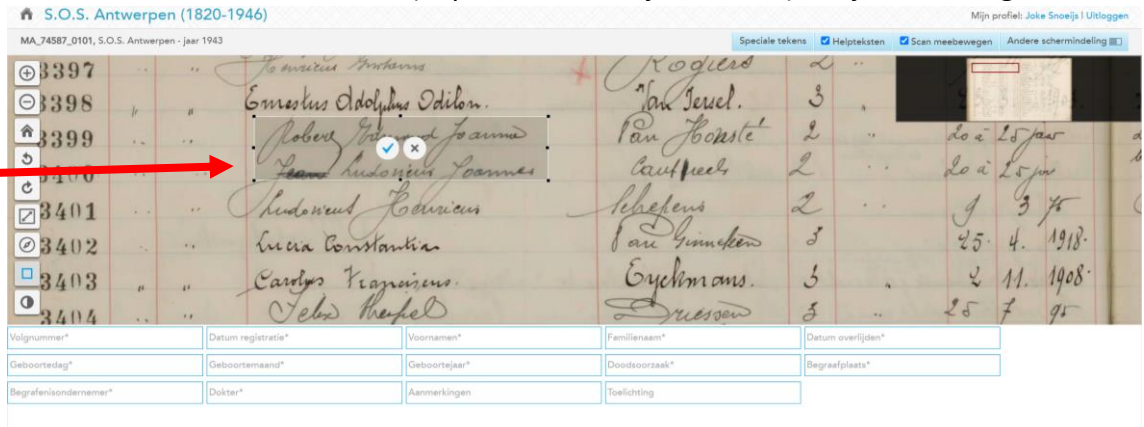 S.O.S. Antwerpen (1820-1946)
Mijn profiel: Joke Snoeijs | Uitloggen
MA_74587_0101, S.O.S. Antwerpen - jaar 1943
Speciale tekens Helpteksten Scan meebewegen Andere schermindeling
3397 Henricus Rogiers 2
3398 Ernestus Adolphus Odilon. Van Iersel. 3
3399 Robert Joanna Van 2 20 à 25 jaar
3400 Ludovicus Joannes 2 20 à 25 jaar
3401 Ludovicus Henricus Schepens 2 9 3 75
3402 Lucia Constantia Van Ginneken 3 25. 4. 1918.
3403 Carolus Franciscus. Eyckmans. 3 2 11. 1908.
3404 Felix Driessen 3 25 7 95
Volgnummer* Datum registratie* Voornamen* Familienaam* Datum overlijden*
Geboortedag* Geboortemaand* Geboortejaar* Doodsoorzaak* Begraafplaats*
Begrafenisondernemer* Dokter* Aanmerkingen Toelichting